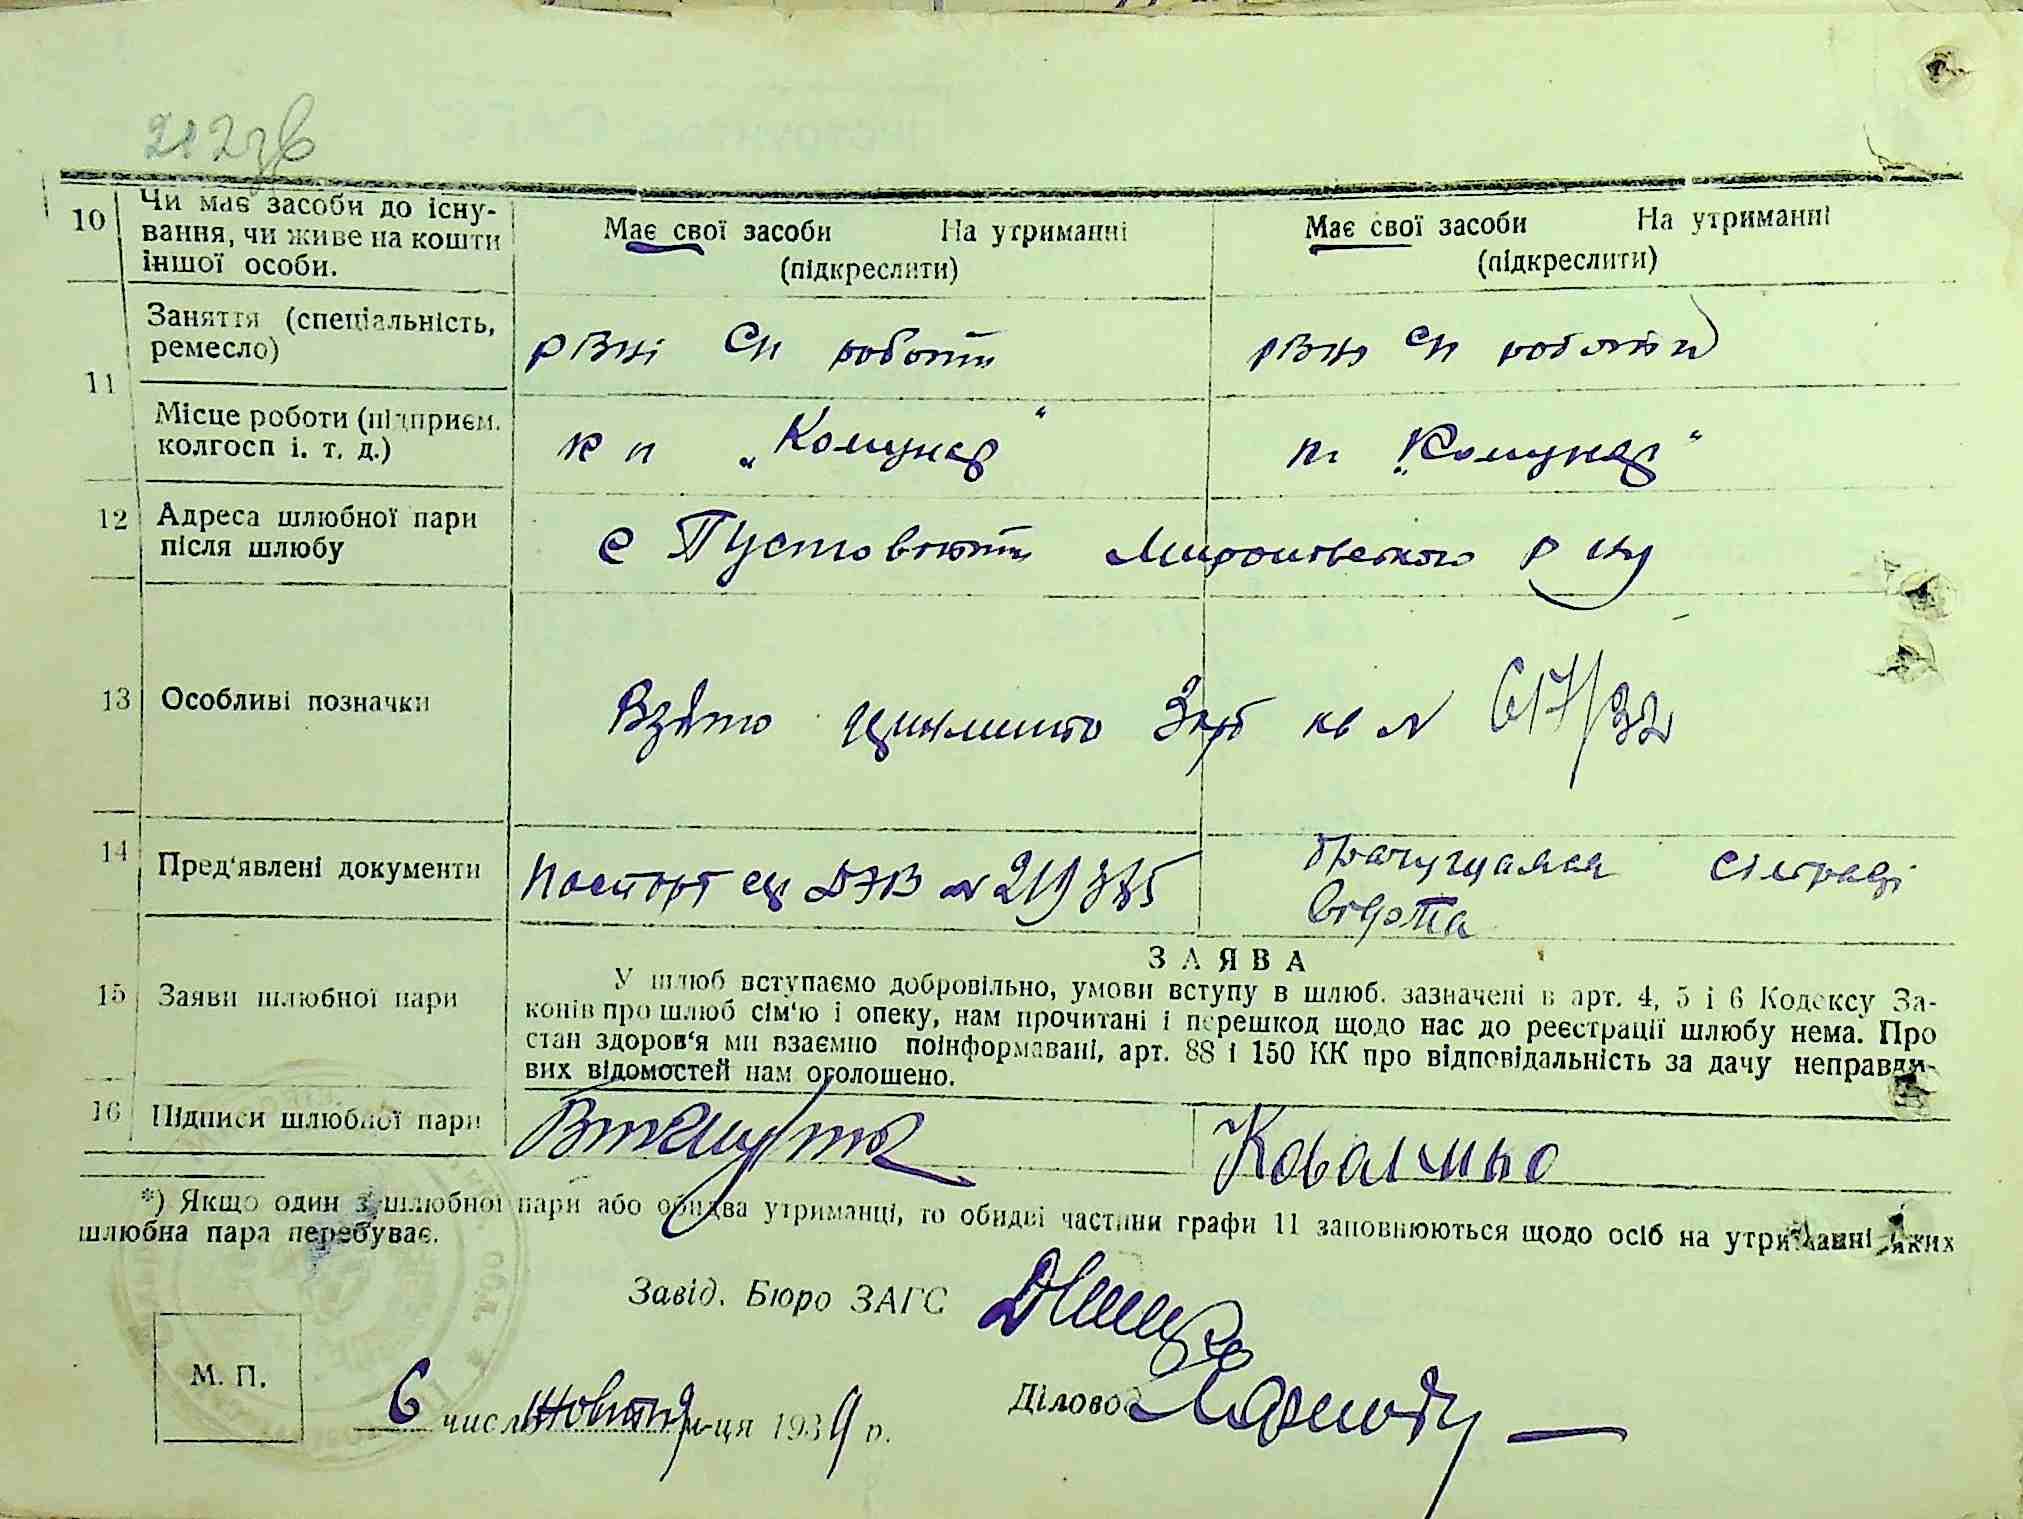 212зв
10 Чи має засоби до існу-
вання, чи живе на кошти
іншої особи.
Має свої засоби На утриманні
(підкреслити)
Має свої засоби На утриманні
(підкреслити)
11 Заняття (спеціальність,
ремесло)
різні сг роботи
різні сг роботи
Місце роботи (підприєм.
колгосп і. т. д.)
к г „Комунар“
кг „Комунар“
12 Адреса шлюбної пари
після шлюбу
с Пустовіти Миронівського р ну
13 Особливі позначки
Взято 3 крб кв № 617/32
14 Пред‘явлені документи
Паспорт ДЭВ № 219
сільради
15 Заяви шлюбної пари
ЗАЯВА
У шлюб вступаємо добровільно, умови вступу в шлюб. зазначені в арт. 4, 5 і 6 Кодексу За-
конів про шлюб сім‘ю і опеку, нам прочитані і перешкод щодо нас до реєстрації шлюбу нема. Про
стан здоров‘я ми взаємно поінформавані, арт. 88 і 150 КК про відповідальність за дачу неправди-
вих відомостей нам оголошено.
16 Підписи шлюбної пари
*) Якщо один з шлюбної пари або обидва утриманці, то обидві частини графи 11 заповнюються щодо осіб на утриманні яких
шлюбна пара перебуває.
Завід. Бюро ЗАГС
М. П.
6 числа жовтня м-ця 1939 р.
Діловод